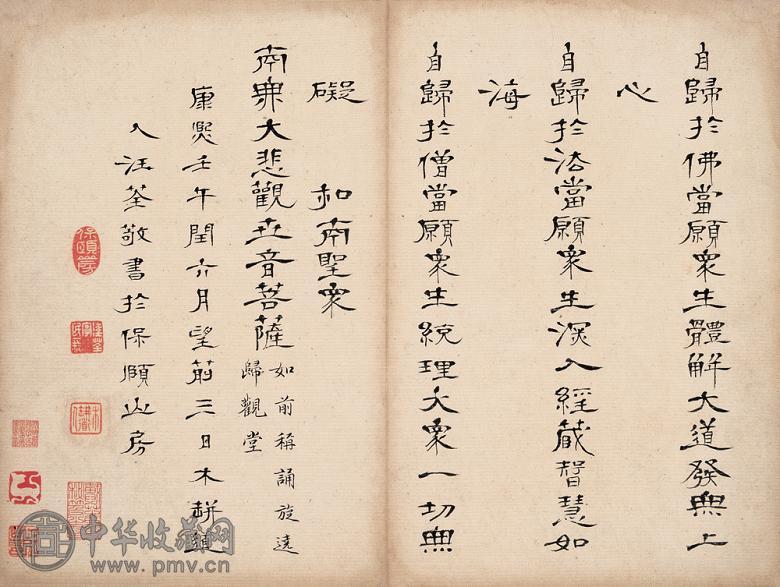 自歸於佛當願衆生體解大道發無上
心
自歸於法當願衆生深入經藏智慧如
海
自歸於僧當願衆生統理大衆一切無
礙 和南聖衆
南無大悲觀世音菩薩
如前稱誦旋遶
歸觀堂
康熙壬午閏六月望前三日木缾
人汪荃敬書於保頤山房
中华收藏网
www.pmv.cn